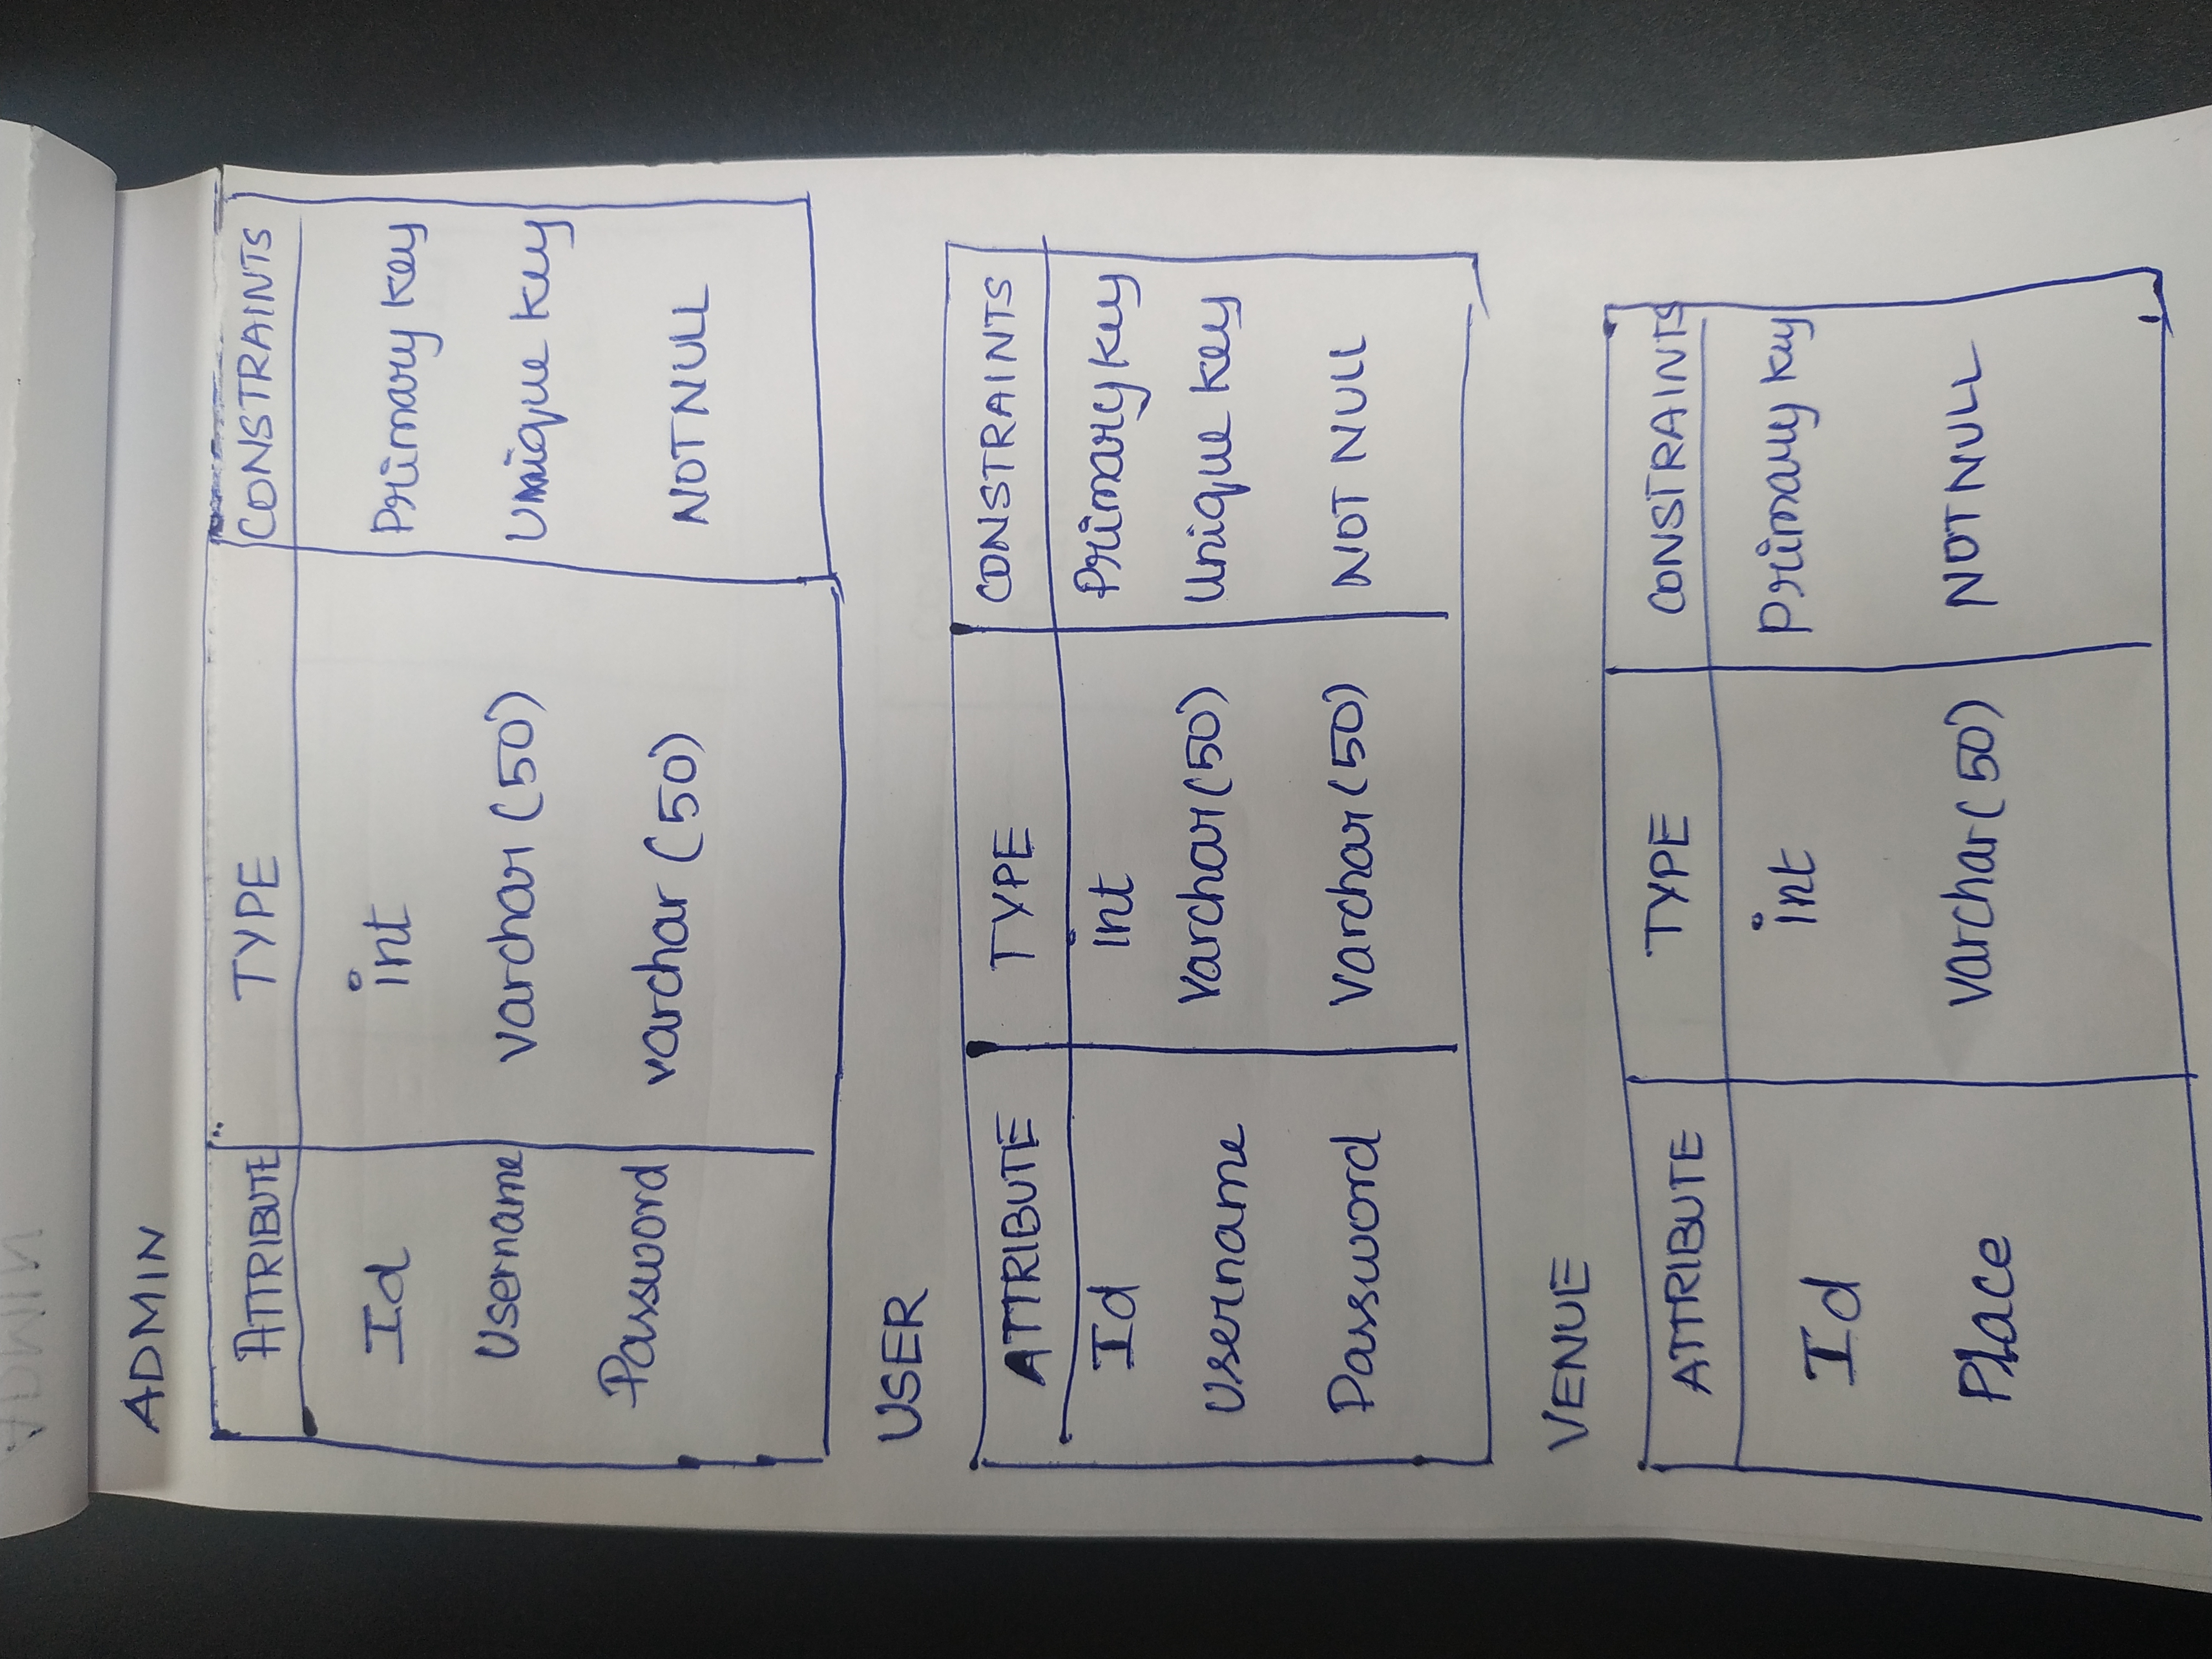 ADMIN
ATTRIBUTE TYPE CONSTRAINTS
Id int Primary Key
Username varchar (50) Unique Key
Password varchar (50) NOT NULL
USER
ATTRIBUTE TYPE CONSTRAINTS
Id int Primary Key
Username Varchar (50) Unique Key
Password Varchar (50) NOT NULL
VENUE
ATTRIBUTE TYPE CONSTRAINTS
Id int Primary Key
Place Varchar (50) NOT NULL